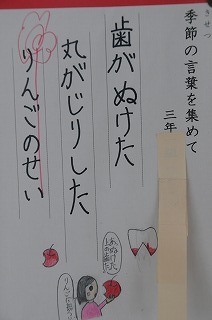 きせつ
季節の言葉を集めて
三年
歯がぬけた
丸がじりした
りんごのせい